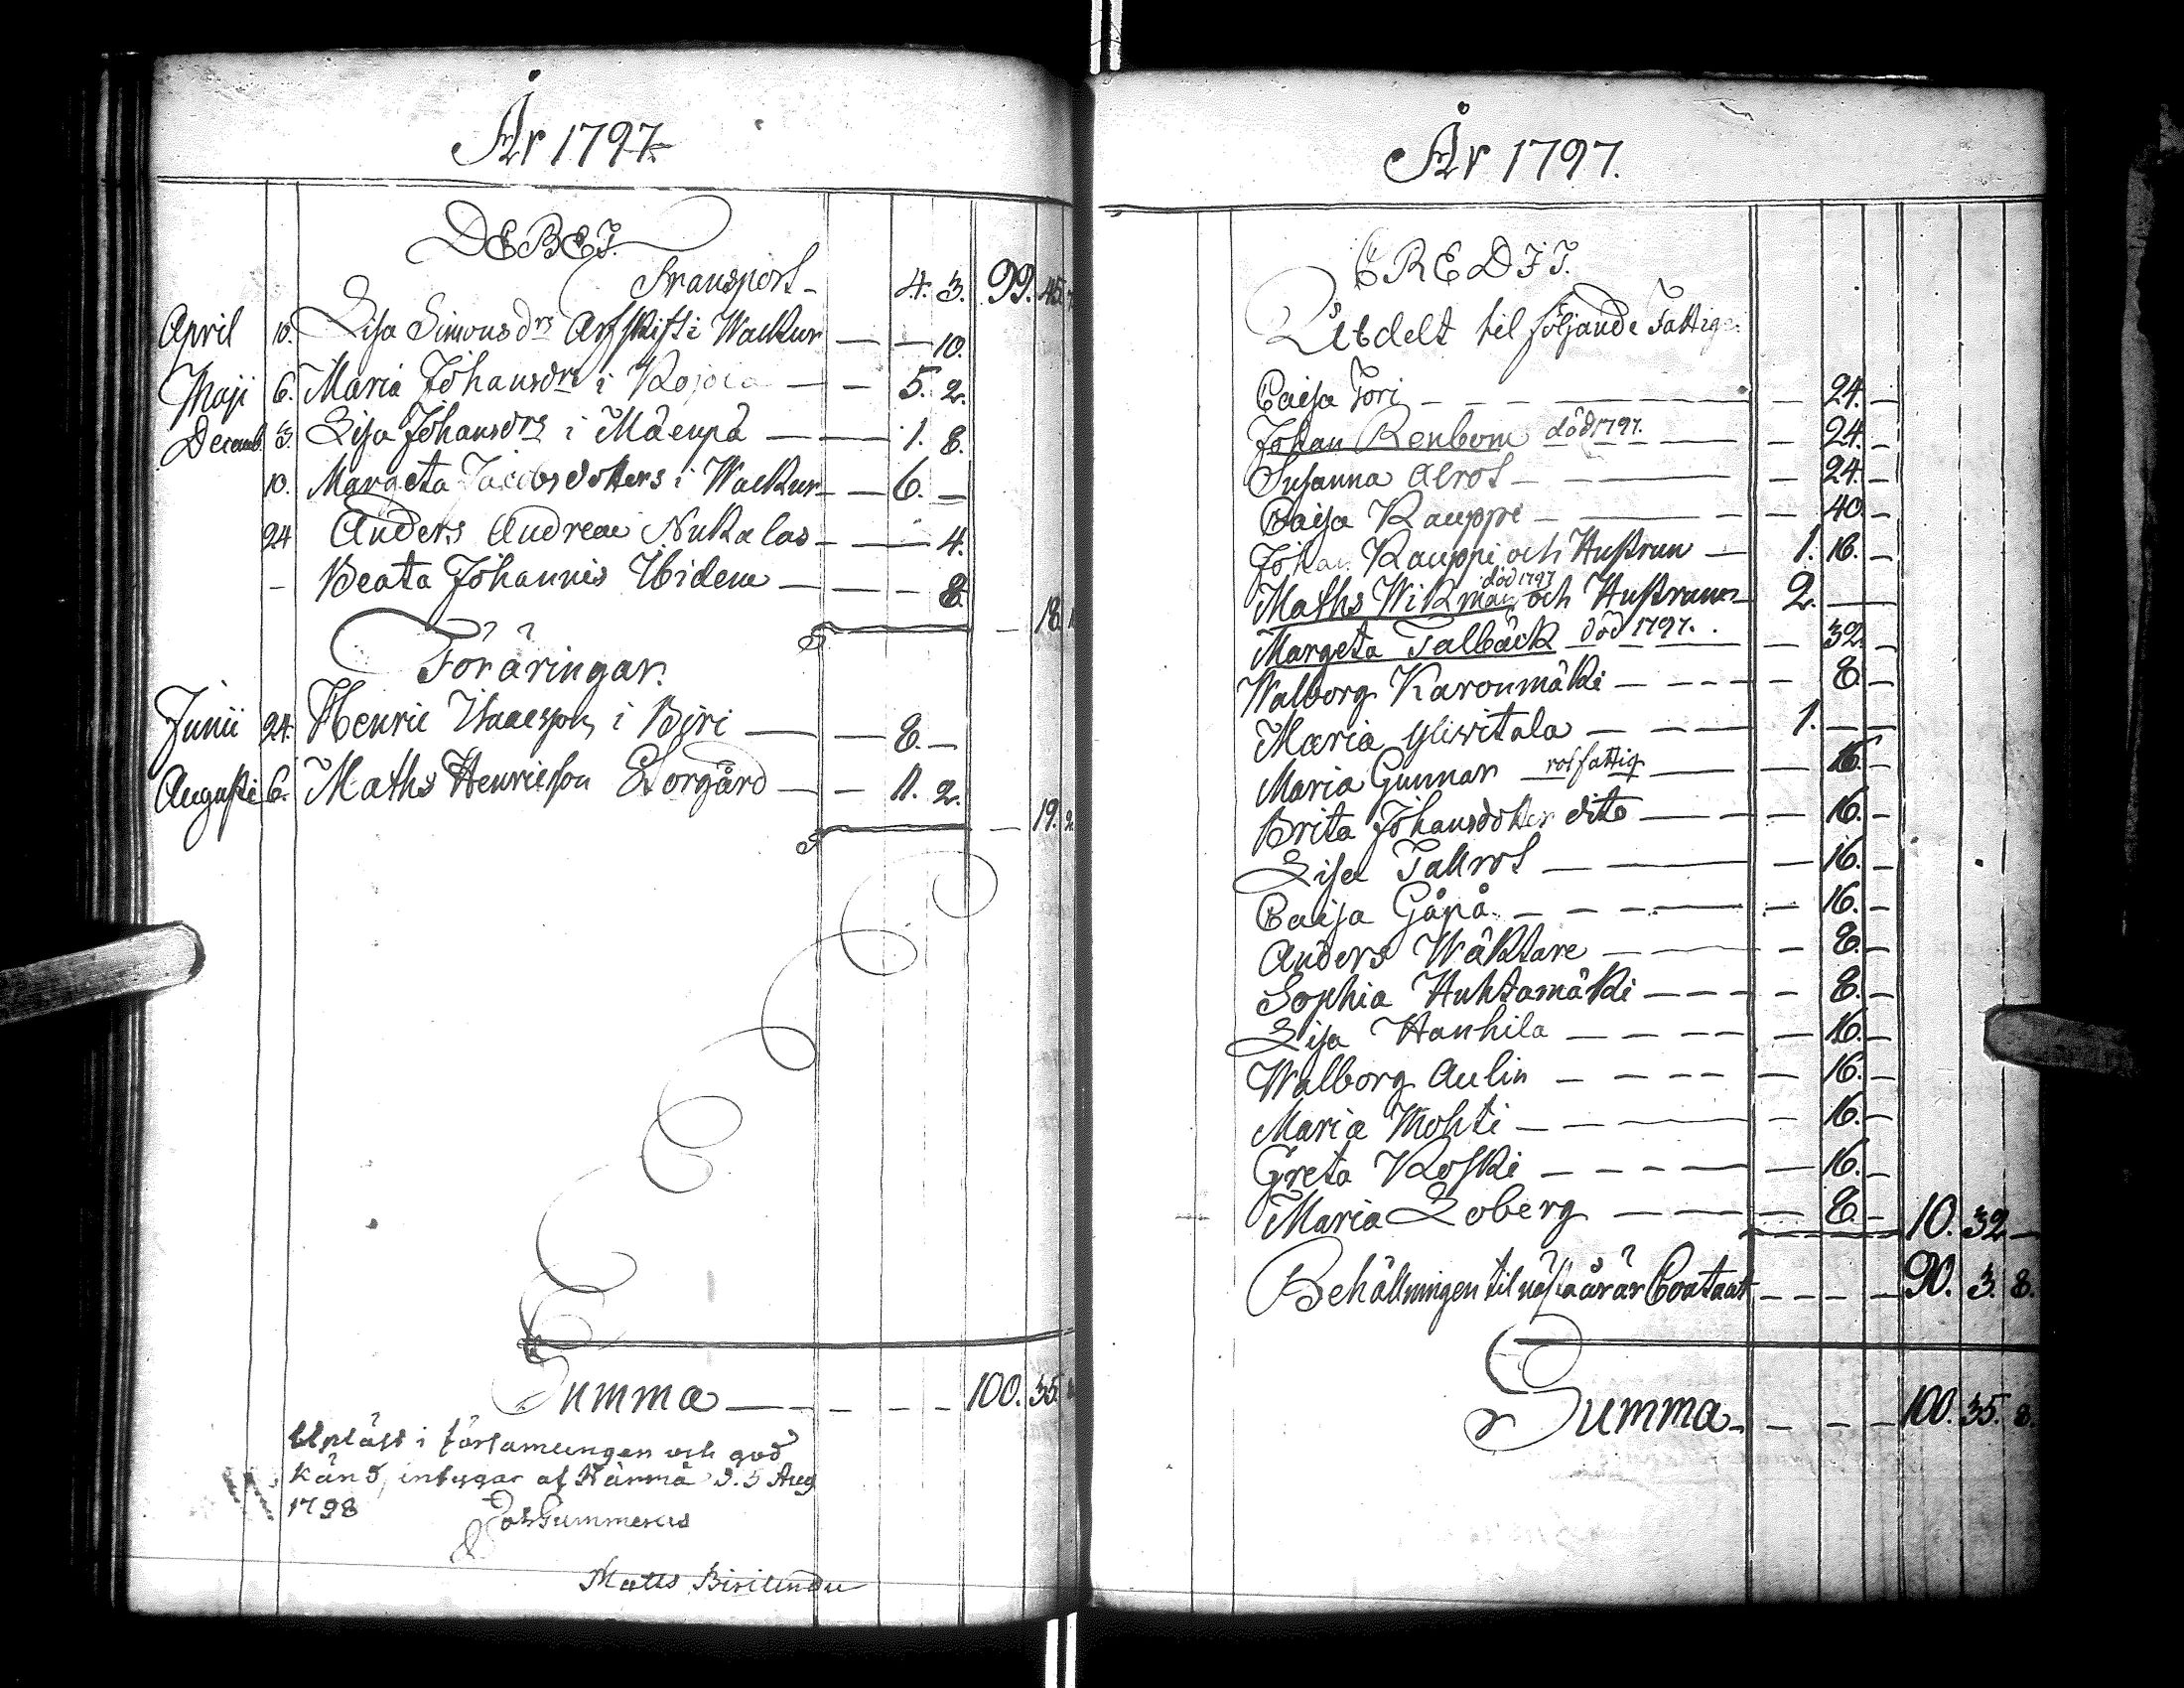 År 1797.
DEBET.
Transport - 4. 3. 99. 45.
April 10. Lisa Simonsdrs Arfskift i Wackur — — 10.
Maji 6. Maria Johansdrs i — — 5. 2.
Decemb. 3. Lisa Johansdrs i Mäenpä — — 1. 8.
10. Margeta Jacobsdotters i Wackur — — 6. —
24 Anders Andreae Nukalas — — — 4.
- Beata Johannis Ibidem — — — 8.
— 18.
Föräringar.
Junii 24. Henric Isaacsson i Biri — — 8. —
Augusti 6. Maths Henricsson Storgård — — 11. 2.
— 19. 2
Summa — — — — 100. 35.
Upläst i församlingen och god
känd, intygar af Kärmä d. 5 Aug
1798 Joh Gummerus
Matts
År 1797.
CREDIT.
Utdelt til följande Fattige.
Caisa Jori — — — — 24. —
Johan Renbom död 1797. — — 24. —
Susanna Alrot — — — 24. —
Caisa Kauppi — — — 40 —
Johan Kauppi och Hustrun — 1. 16. —
död 1797
Maths Wikman och Hustrun — 2. —
Margeta Talbäck död 1797. — — 32. —
Walborg Karonmäki — — — — 8. —
Maria Yliwitala — — — 1. — —
Maria Gunnar rotfattig — — 16. —
Brita Johansdotter dito — — — 16. —
Lisa Tallrot — — — 16. —
Caisa Gåpå — — — — 16. —
Anders Wäktare — — — 8. —
Sophia Huhtamäki — — — — 8. —
Lisa Hanhila — — — — 16. —
Walborg Aulin — — — — — 16. —
Maria Mohti — — — — 16. —
Greta Koski — — — — — 16. —
Maria Loberg — — — — 8. — 10. 32 —
Behållningen til nästa år är Contant — — — — 90. 3. 8.
Summa — — — — 100. 35. 8.